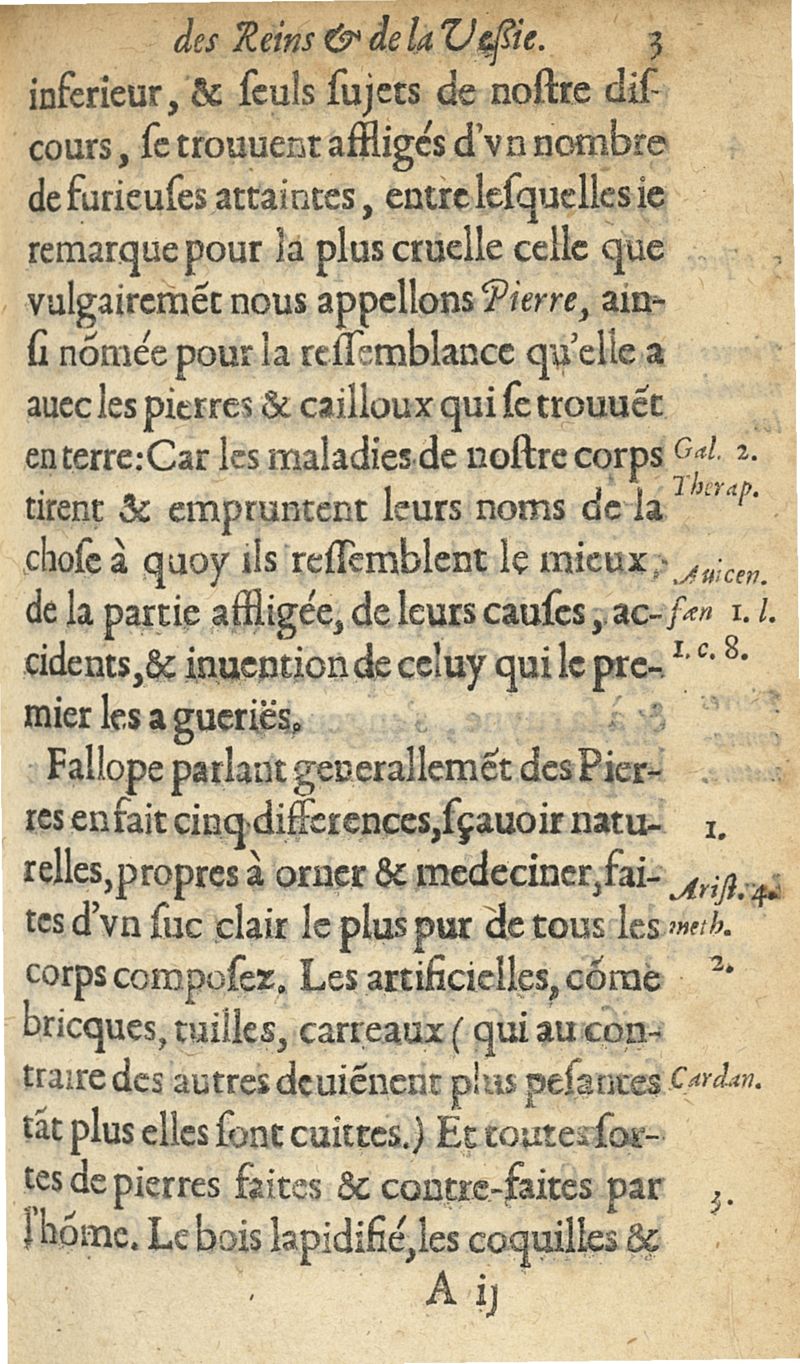 des Reins & de la Veßie. 3
inferieur, & ſeuls ſujets de noſtre diſ-
cours, ſe trouuent affligés d'vn nombre
de furieuſes attaintes, entre leſquelles ie
remarque pour la plus cruelle celle que
vulgairemẽt nous appellons Pierre, ain-
ſi nõmée pour la reſſemblance qu'elle a
auec les pierres & cailloux qui ſe trouuẽt
en terre: Car les maladies de noſtre corps
Gal. 2.
Therap.
tirent & empruntent leurs noms de la
choſe à quoy ils reſſemblent le mieux,
de la partie affligée, de leurs cauſes, ac-
Auicen.
fæn 1. l.
1. c. 8.
cidents, & inuention de celuy qui le pre-
mier les a gueriës.
Fallope parlant generallemẽt des Pier-
res en fait cinq differences, ſçauoir natu-
1.
relles, propres à orner & medeciner, fai-
Ariſt. 4.
meth.
tes d'vn ſuc clair le plus pur de tous les
corps compoſez. Les artificielles, cõme
2.
bricques, tuilles, carreaux ( qui au con-
traire des autres deuiẽnent plus peſantes
Cardan.
tãt plus elles ſont cuittes.) Et toutes ſor-
tes de pierres faites & contre-faites par
3.
l'hõme. Le bois lapidifié, les coquilles &
A ij